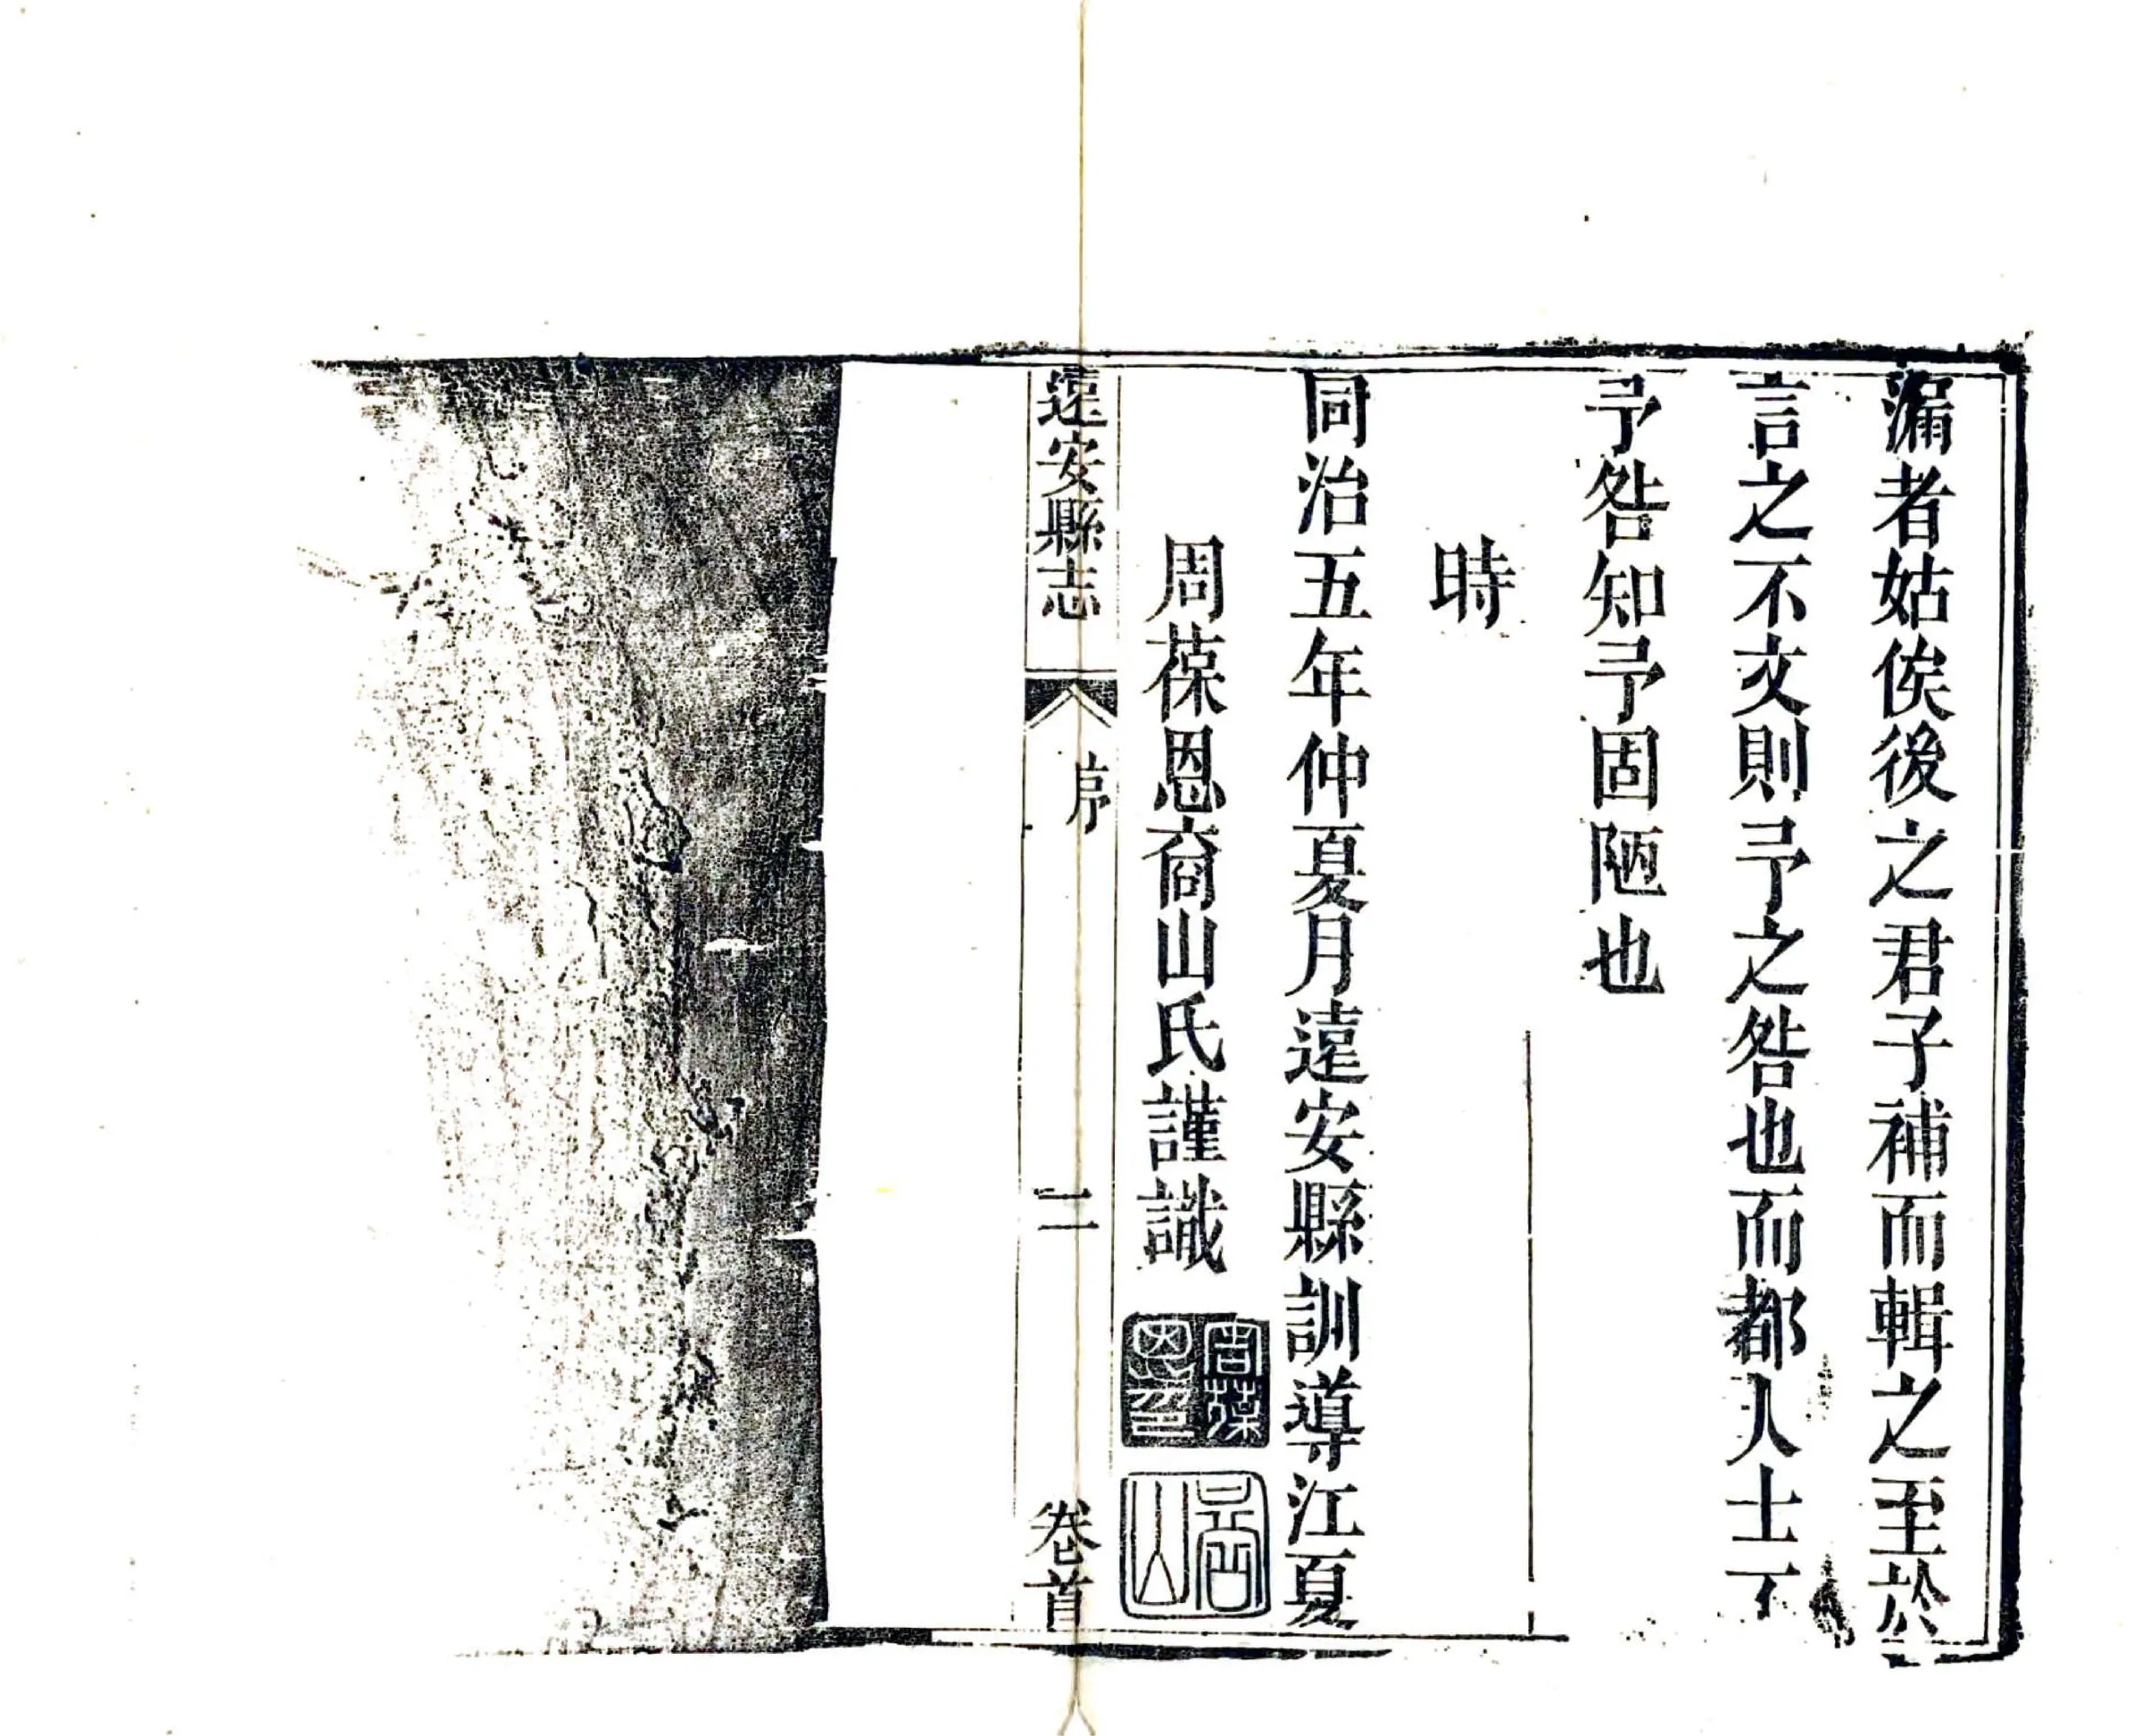 漏者姑俟後之君子補而輯之至於
言之不文則予之咎也而都人士不
予咎知予固陋也
時
同治五年仲夏月遠安縣訓導江夏
周葆恩裔山氏謹識
周葆恩印
裔山
遠安縣志
序
二
卷首